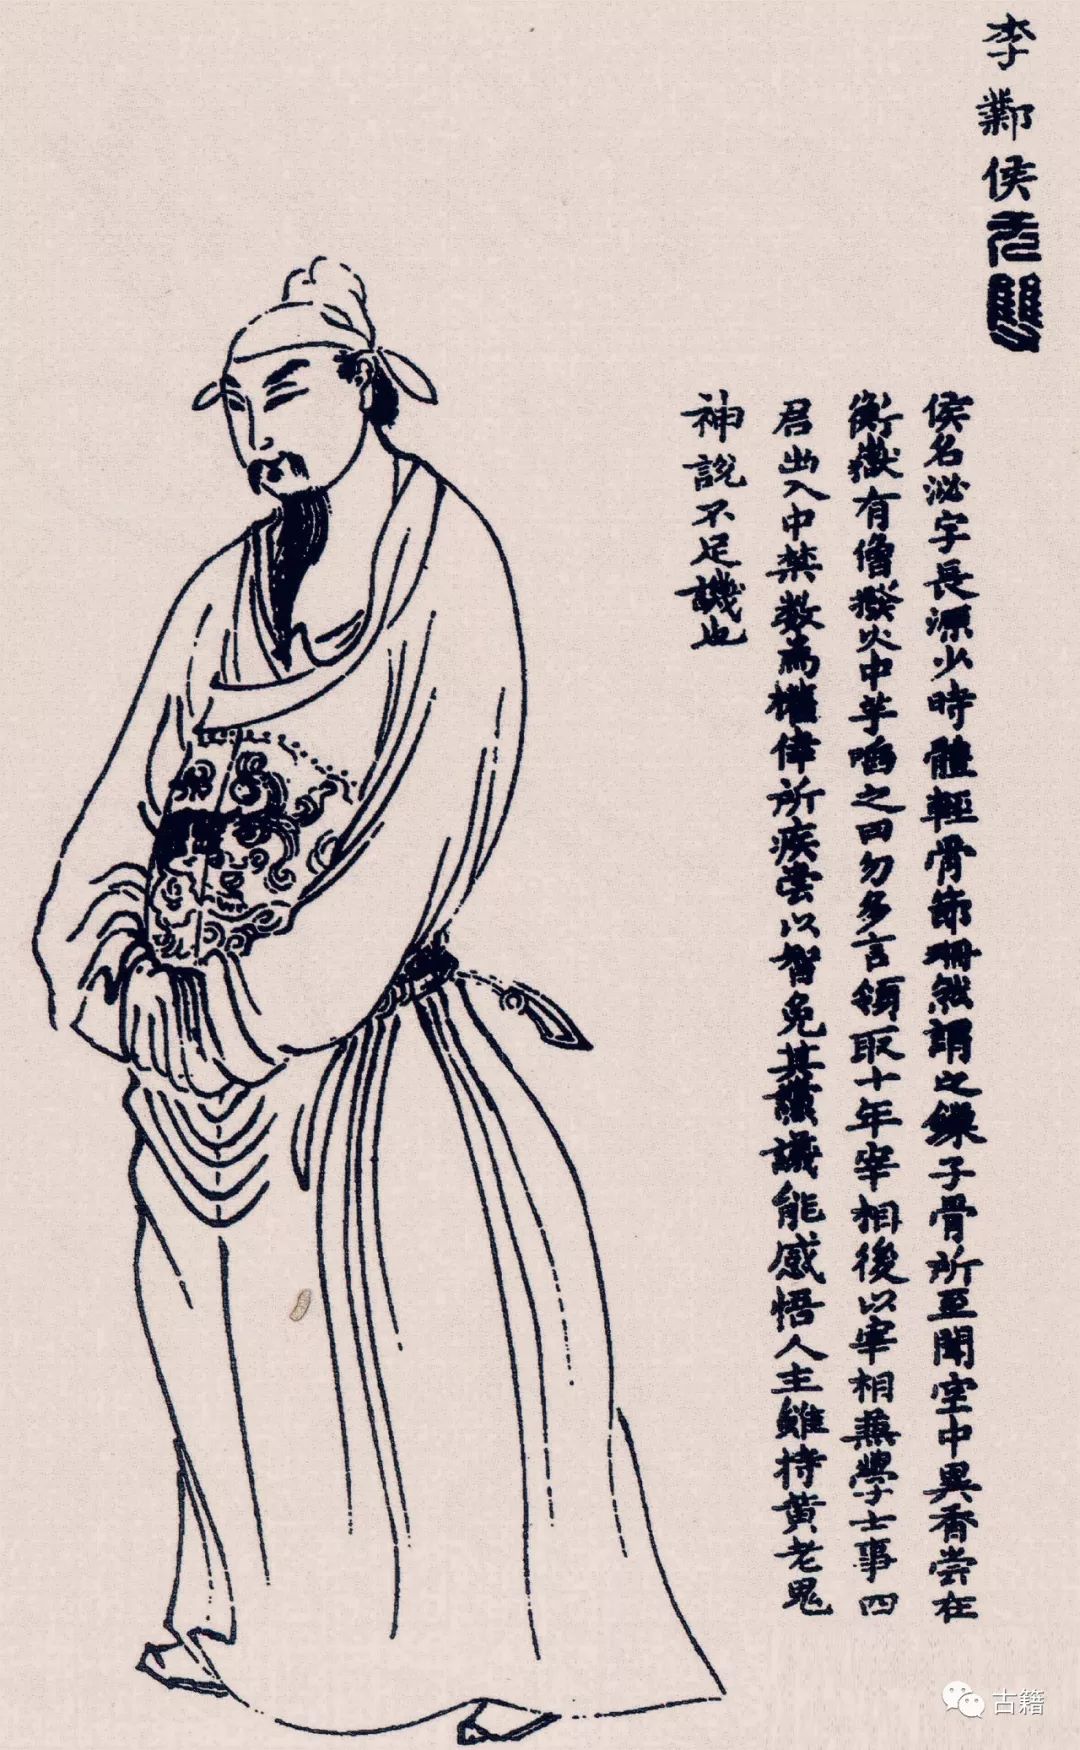 李鄴侯
无雙
侯名泌字長源少時體輕骨節珊然謂之鏁子骨所至聞空中異香嘗在
衡嶽有僧撥火中芋啗之曰勿多言領取十年宰相後以宰相蕪學士事四
君出入中禁数為權倖所疾嘗以智免其讜議能感悟人主雖持黄老鬼
神說不足譏也
古籍